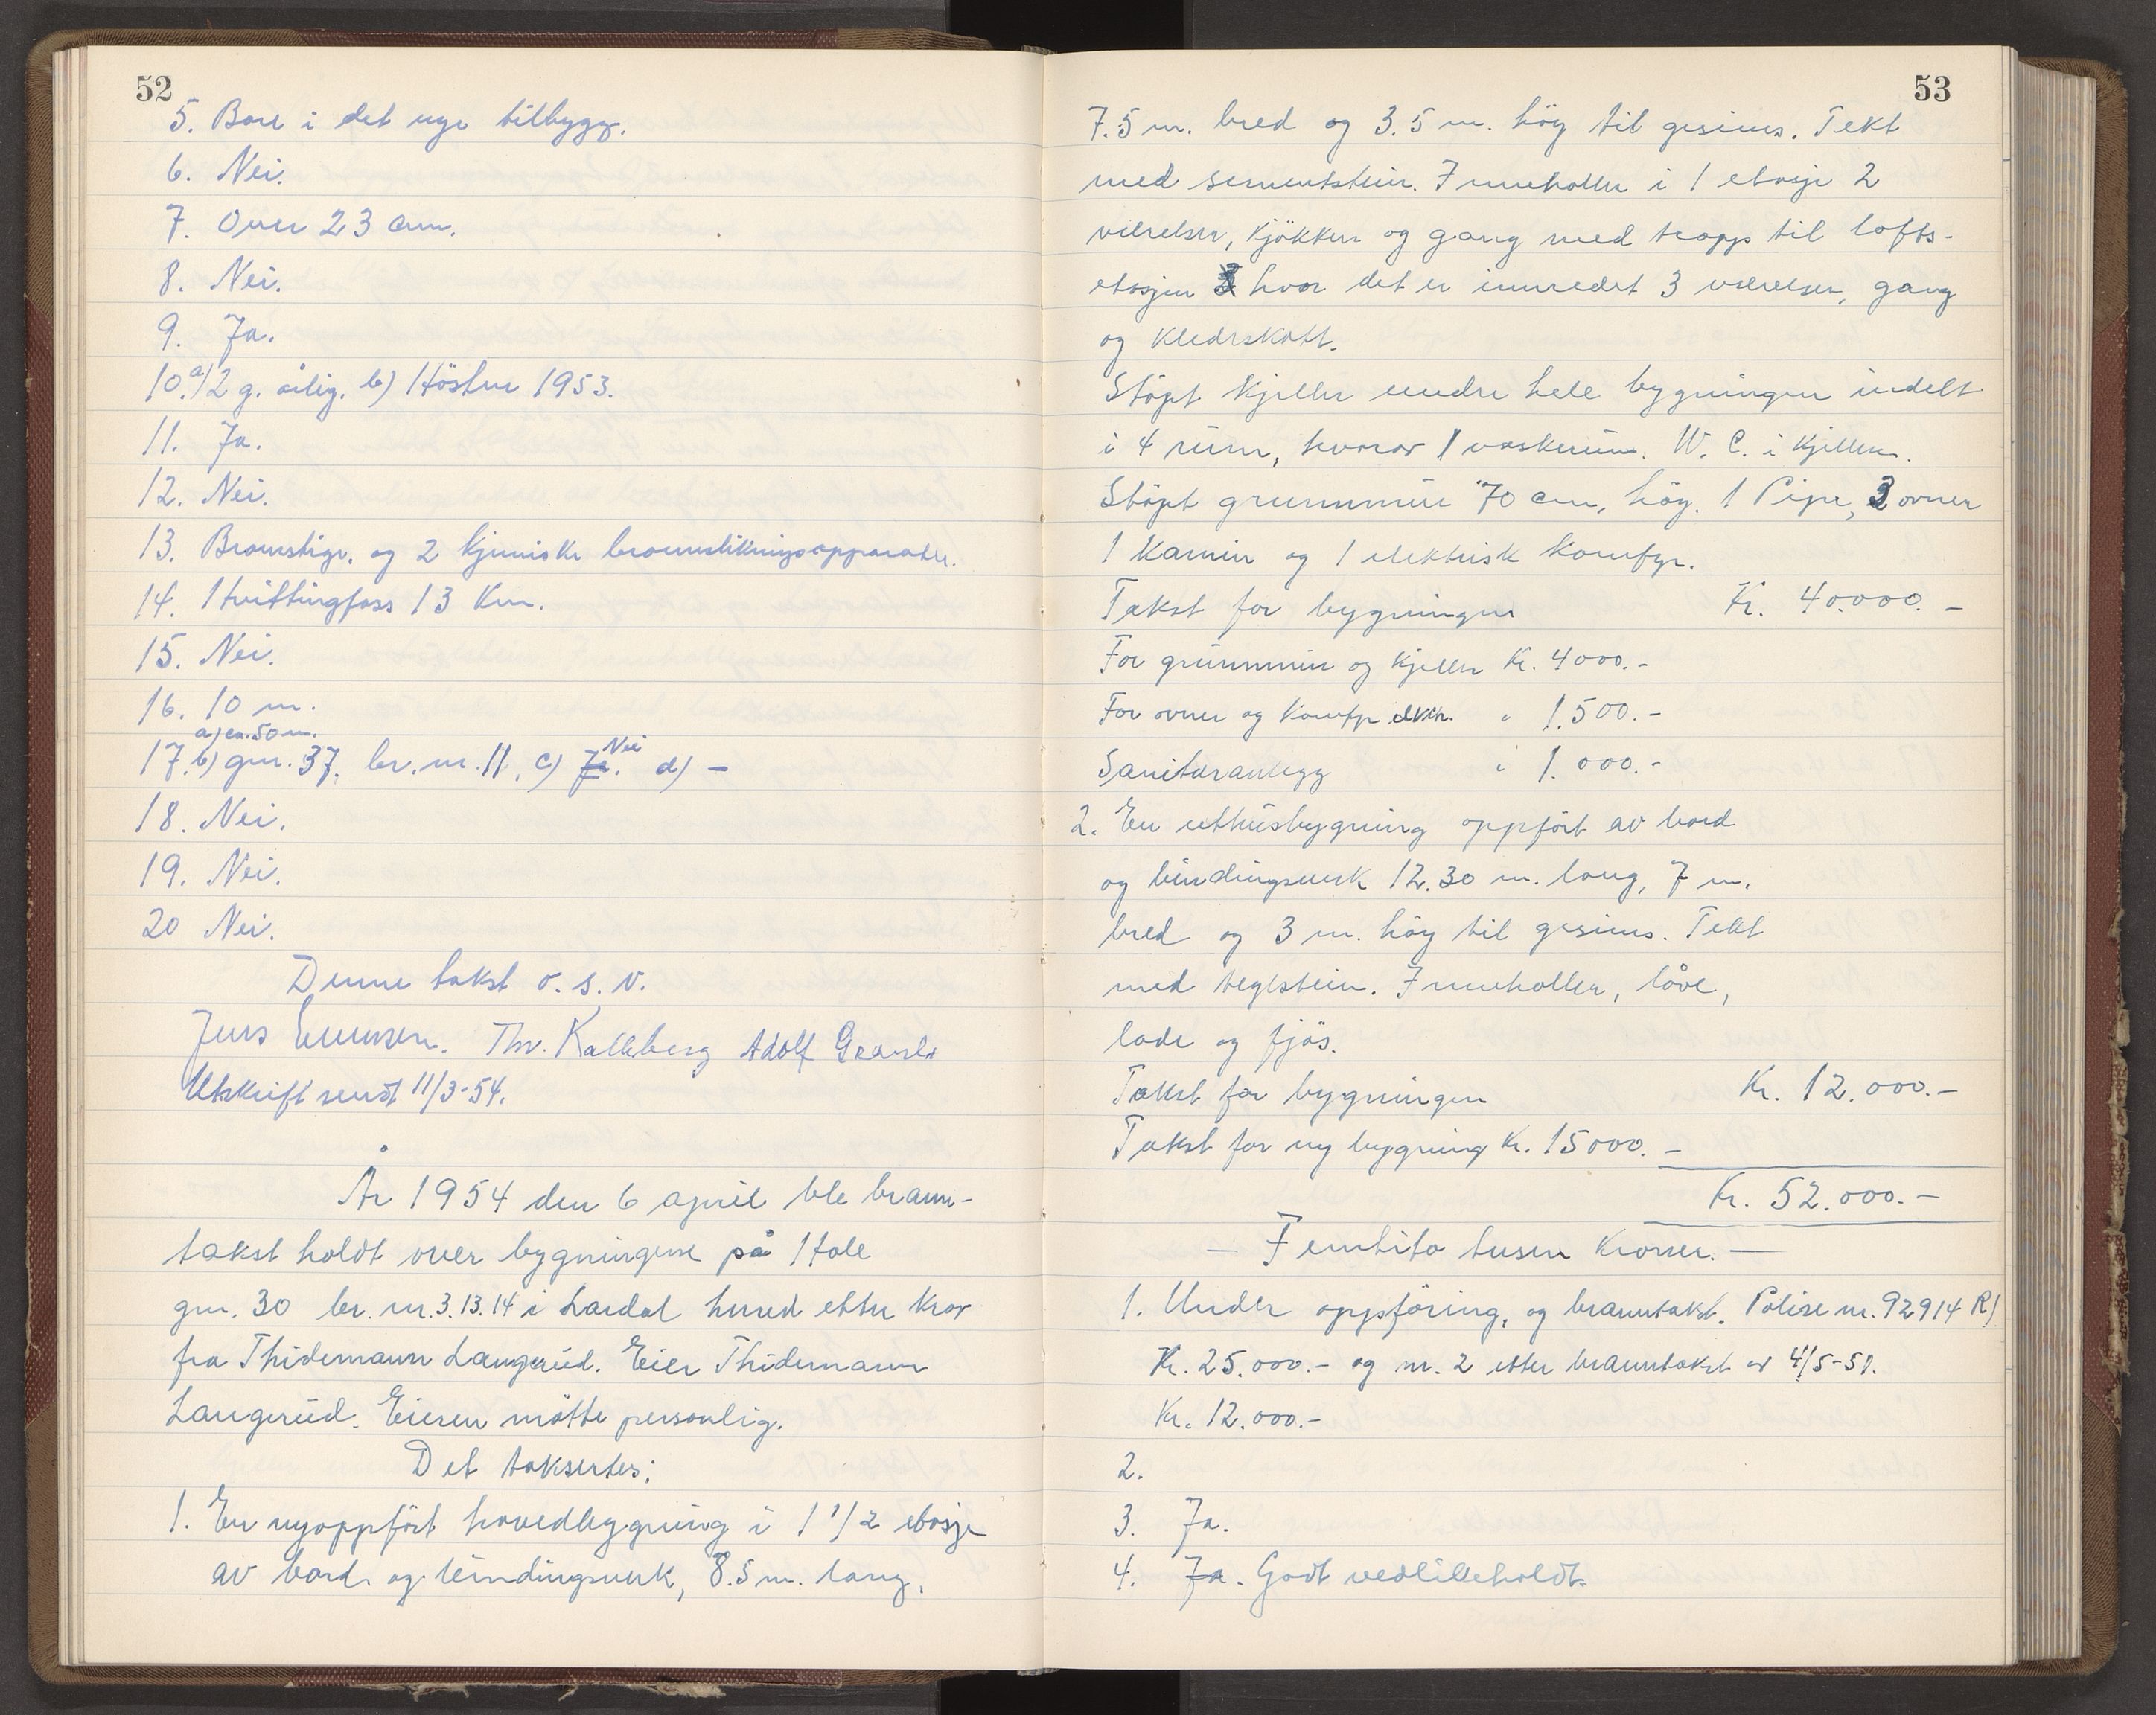 52
5. Bare i det nye tilbygg.
6. Nei.
7. Over 23 cm.
8. Nei.
9. Ja.
10. a) 2 g. årlig. b) Hösten 1953.
11. Ja.
12. Nei.
13. Brannstige. og 2 kjemiske brannslikningsapparater.
14. Hvittingfoss 13 Km.
15. Nei.
16. 10 m.
a) ca. 50 m.
17. b) gnr. 37, br. nr. 11, c) Ja. Nei d) –
18. Nei.
19. Nei.
20 Nei.
Denne takst o. s. v.
Jens Evensen. Thv. Kalleberg Adolf
Utskrift sendt 11/3-54.
År 1954 den 6 april ble brann-
takst holdt over bygningene på Hole
gnr. 30 br. nr. 3.13.14 i Lardal herred etter krav
fra Thidemann Langerud. Eier Thidemann
Langerud. Eieren mötte personlig.
Det taksertes:
1. En nyoppfört hovedbygning i 1 1/2 etasje
av bord og bindingsverk, 8.5 m. lang,
53
7.5 m. bred og 3.5 m. höy til gesims. Tekt
med sementstein. Inneholler i 1 etasje 2
værelser, kjökken og gang med trapp til lofts-
etasjen hvor det er innredet 3 værelser, gang
og kledeskott.
Stöpt kjeller under hele bygningen indelt
i 4 rum, hvorav 1 vaskerum. W. C. i kjelleren.
Stöpt grunnmur 70 cm, höy. 1 Pipe, 3 ovner
1 Kamin og 1 elektrisk komfyr.
Takst for bygningen Kr. 40.000. –
For grunnmur og kjeller Kr. 4000.-
For ovner og komfyr elektr. " 1.500.-
Sanitæranlegg " 1.000.-
2. En uthusbygning oppfört av bord
og bindingsverk 12.30 m. lang, 7 m.
bred og 3 m. höy til gesims. Tekt
med teglstein. Inneholler, låve,
lade og fjös.
Takst for bygningen Kr. 12.000.–
Takst for ny bygning Kr. 15000. –
Kr. 52.000.–
– Femtito tusen Kroner. –
1. Under oppföring, og branntakst. Polise nr. 92914 R)
Kr. 25.000.- og nr. 2 etter branntakst av 4/5-51.
Kr. 12.000.-
2.
3. Ja.
4. Ja. Godt vedlilleholdt.